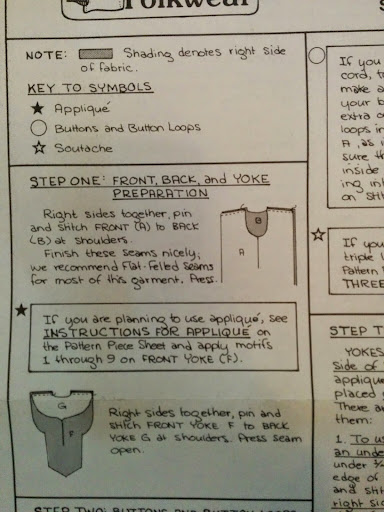 Folkwear
NOTE: Shading denotes right side
of fabric.
KEY TO SYMBOLS
★ Appliqué
○ Buttons and Button Loops
☆ Soutache
STEP ONE: FRONT, BACK, and YOKE
PREPARATION
Right sides together, pin
and stitch FRONT (A) to BACK
(B) at shoulders.
Finish these seams nicely;
we recommend flat-felled seams
for most of this garment. Press.
B
A
★ If you are planning to use appliqué, see
INSTRUCTIONS FOR APPLIQUÉ on
the Pattern Piece Sheet and apply motifs
1 through 9 on FRONT YOKE (F).
G
F
Right sides together, pin and
stitch FRONT YOKE F to BACK
YOKE G at shoulders. Press seam
open.
STEP TWO: BUTTONS AND BUTTON LOOPS
If you
cord, t
make a
your b
extra o
loops i
A, as i
sure th
inside
ing in
on sti
☆ If you
triple
Pattern
THREE
STEP T
YOKES
side of
applique
placed
There a
them:
1. To us
an unde
under
edge of
and stit
right sid